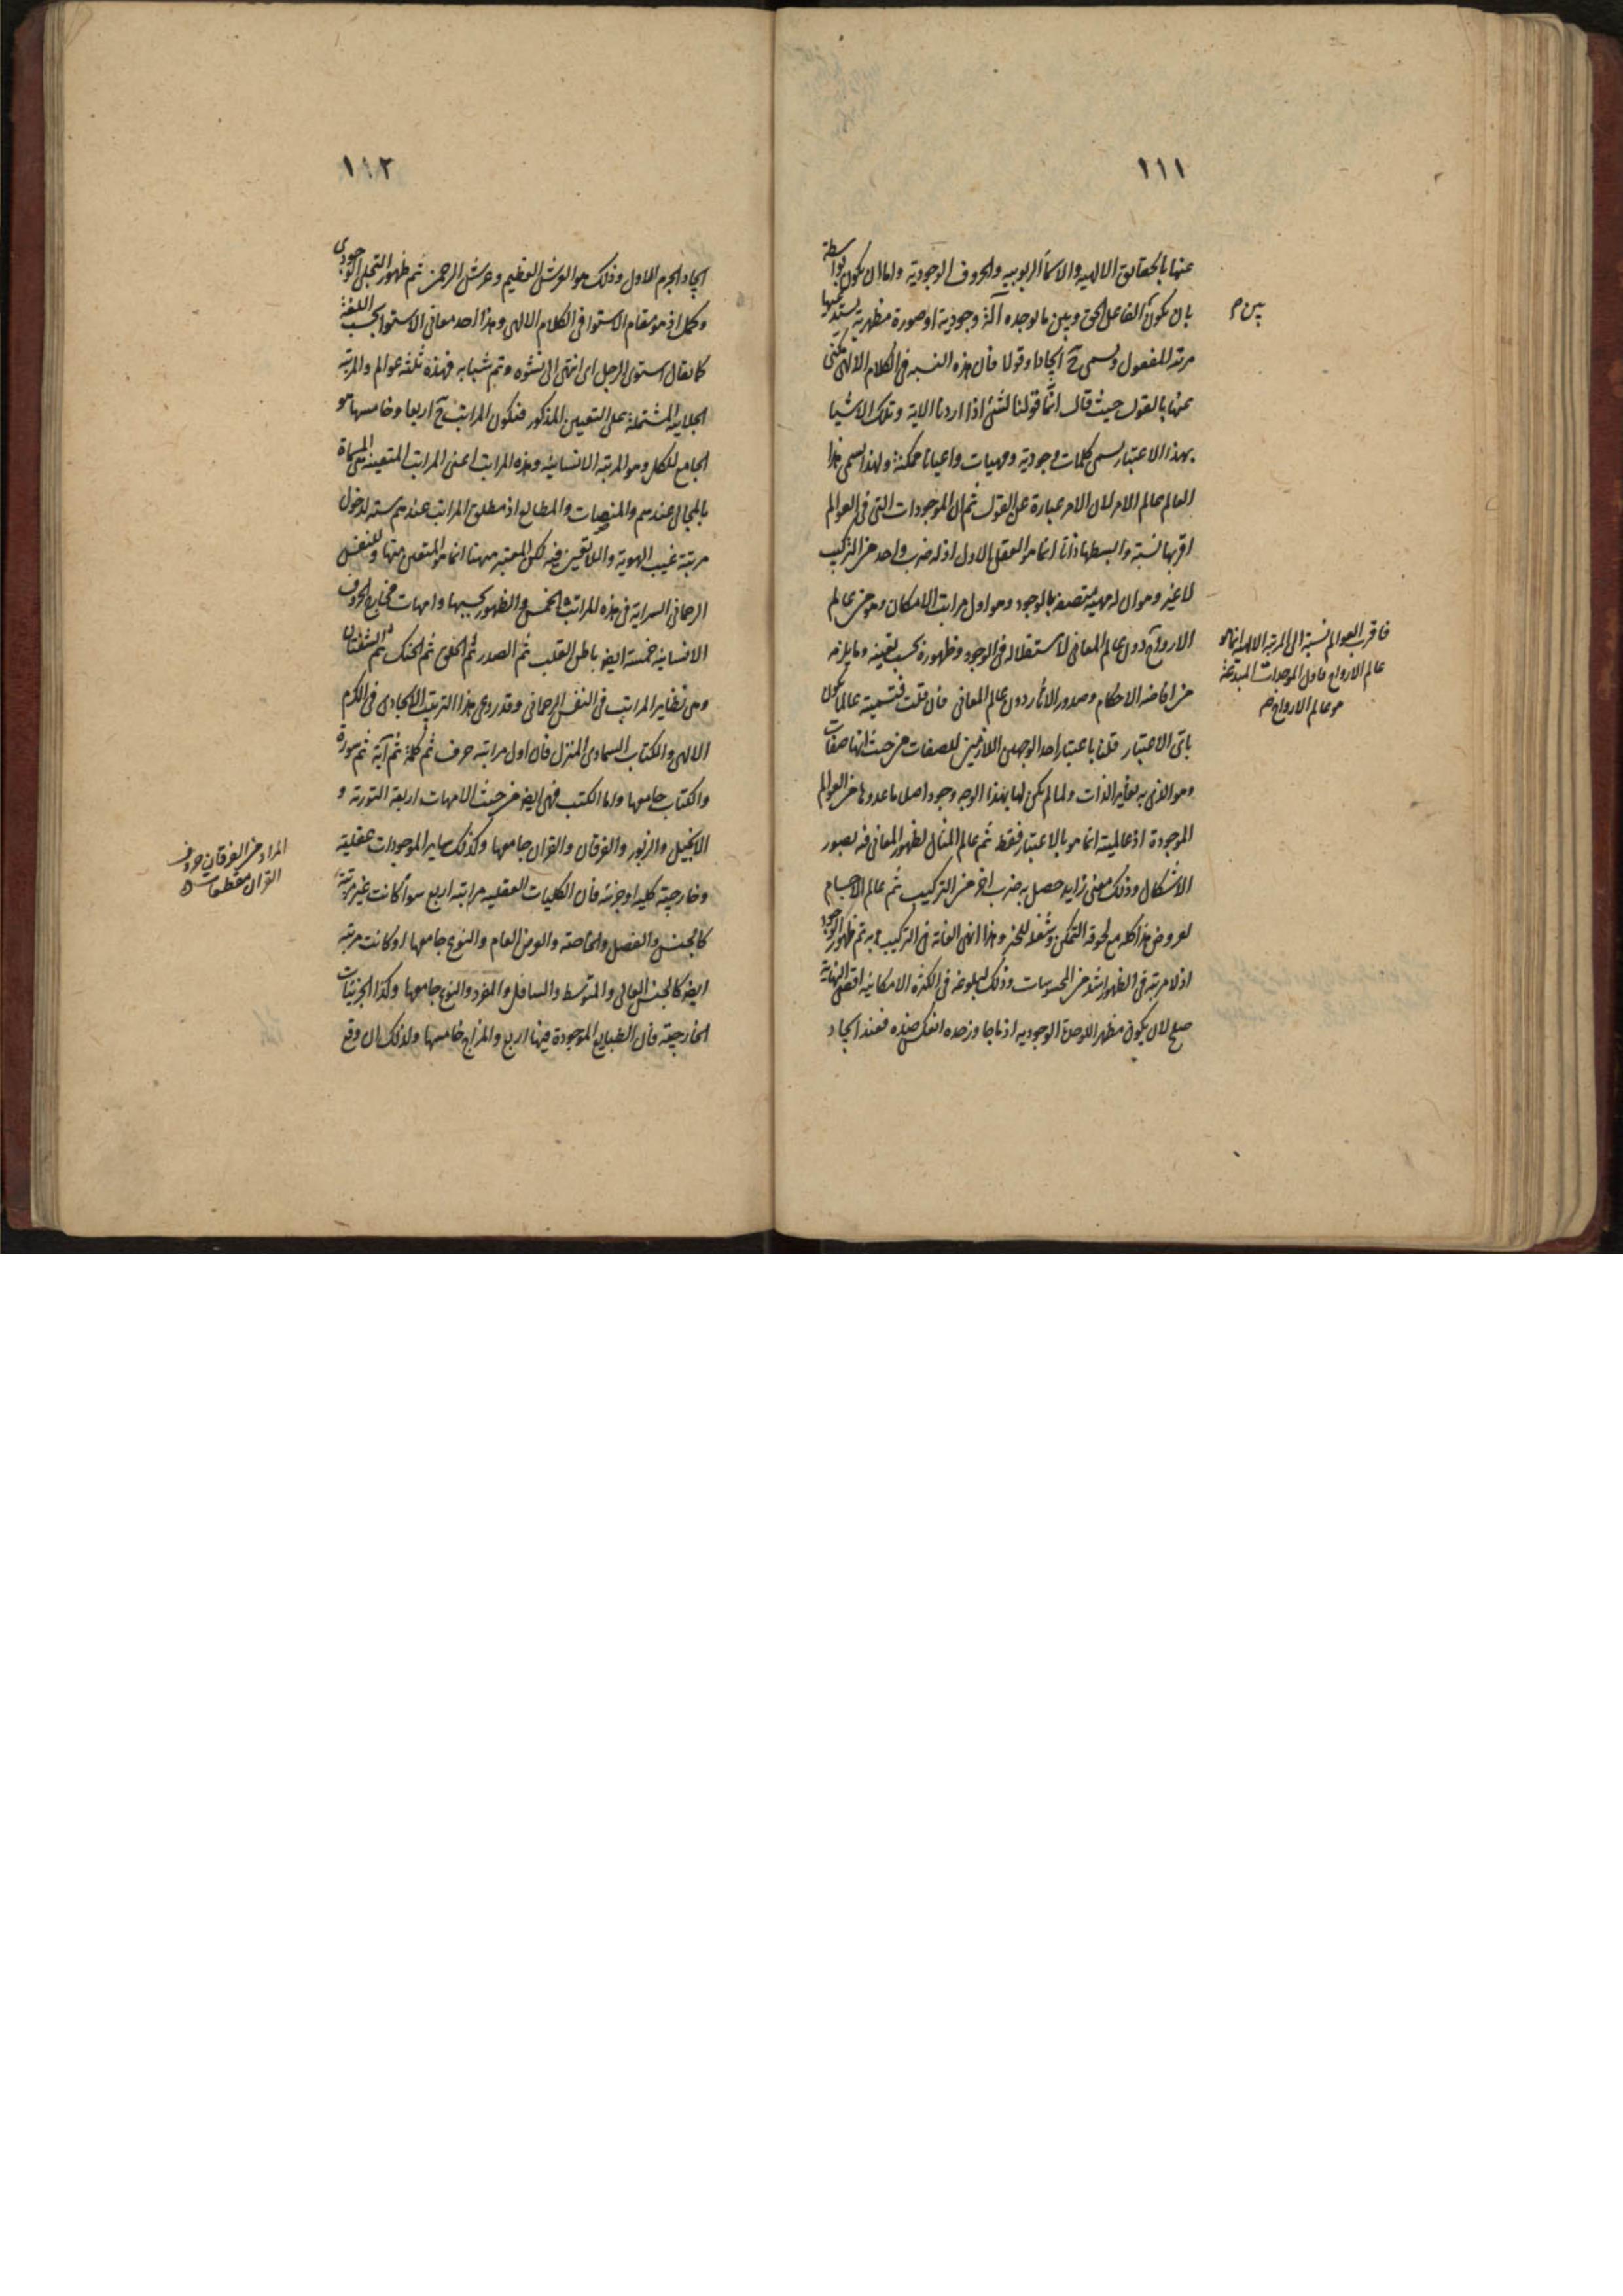 ١١١
عنها بالحقائق الالهيه والاسمآ الربوبيه والحروف الوجودية واما ان يكون بواسطة
بان يكون الفاعل الحق وبين ما يوجده آلة وجودية او صورة مظهرية يستدعيها
مرتبة المفعول ويسمى ح ايجادا وقولا فان هذه النسبه فى الكلام الالهى يكنى
عنها بالقول حيث قال انما قولنا لشئ اذا اردنا الاية وتلك الاشيا
بهذا الاعتبار يسمى كلمات وجودية ومهيات واعيانا ممكنة ولهذا يسمى هذا
العالم عالم الامر لان الامر عبارة عن القول ثم ان الموجودات التى فى العوالم
اقربها نسبة وابسطها ذاتا انما هو العقل الاول اذ له ضرب واحد من التركيب
لا غير وهو ان له مهية متصفة بالوجود وهو اول مراتب الامكان وهو من عالم
الارواح دون عالم المعانى لاستقلاله فى الوجود وظهوره بحسب تعينه وما يلزمه
من افاضة الاحكام وصدور الآثار دون عالم المعانى فان قلت فتسميته عالما يكون
باى الاعتبار قلنا باعتبار احد الوجهين اللازمين للصفات من حيث انها صفات
وهو الذى به يغاير الذات ولما لم يكن لها بهذا الوجه وجود اصلا ما عدوها من العوالم
الموجودة اذ عالميته انما هو بالاعتبار فقط ثم عالم المثال لظهور المعانى فيه بصور
الاشكال وذلك معنى زايد حصل به ضرب اخر من التركيب ثم عالم الاجسام
لعروض هذا كله مع لحوقه التمكن وشغله للحيز وهذا انهى الغاية فى التركيب وبه تم ظهور الوجود
اذ لا مرتبة فى الظهور اشد من المحسوسات وذلك لبلوغه فى الكثرة الامكانية اقصى النهاية
صلح لان يكون مظهرا للوحدة الوجوديه اذ ما جاوز حده انعكس ضده فعند ايجاد
بين م
فاقرب العوالم نسبة الى المرتبة الالهية انما هو
عالم الارواح فاول الموجودات المبدعة
هو عالم الارواح م
١١٢
ايجاد الجرم الاول وذلك هو العرش العظيم وعرش الرحمن ثم ظهور التجلى الوجودى
وكمل اذ هو مقام الاستوا فى الكلام الالهى وهذا احد معانى الاستوا بحسب اللغة
كما يقال استوى الرجل اى انتهى الى نشوه وتم شبابه فهذه ثلثه عوالم والمرتبة
الجلاييه المشتملة على التعينين المذكور فتكون المراتب ح اربعا وخامسها هو
الجامع للكل وهو المرتبة الانسانيه وهذه المراتب اعنى المراتب المتعينه هى المسماة
بالمجالى عندهم والمنصات والمطالع اذ مطلق المراتب عندهم ستة لدخول
مرتبة غيب الهوية واللاتعين فيه لكن المعتبر ههنا انما هو المتعين منها وللنفس
الرحمانى السراية فى هذه المراتب الخمس والظهور بحسبها وامهات مخارج الحروف
الانسانية خمسة ايضا باطن القلب ثم الصدر ثم الحلق ثم الحنك ثم الشفتان
وهى نظاير المراتب فى النفس الرحمانى وقد روعى هذا الترتيب الايجادى فى الكرم
الالهى والكتاب السماوى المنزل فان اول مراتبه حرف ثم كلمة ثم آية ثم سورة
والكتاب جامعها واما الكتب فهى ايضا من حيث الامهات اربعة التورية و
الانجيل والزبور والفرقان والقران جامعها وكذلك ساير الموجودات عقلية
وخارجية كليه او جزئيه فان الكليات العقليه مراتبها اربع سوآ كانت غير مرتبة
كالجنس والفصل والخاصة والعرض العام والنوع جامعها او كانت مرتبة
ايضا كالجنس العالى والمتوسط والسافل والمفرد والنوع جامعها وكذا الجزئيات
الخارجية فان الطبايع الموجودة فيها اربع والمزاج خامسها ولذلك ان وقع
المراد من الفرقان حروف
القران مقطعات